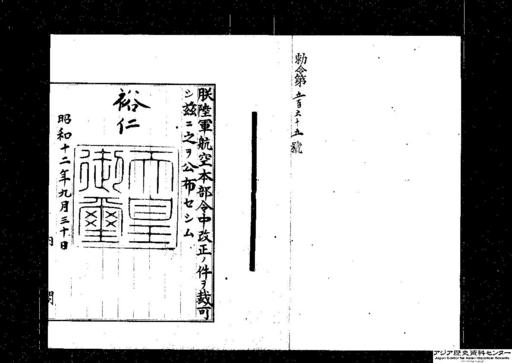 勅令第五百六十五號
朕陸軍航空本部令中改正ノ件ヲ裁可
シ茲ニ之ヲ公布セシム
裕仁
天皇
御璽
昭和十二年九月三十日
内閣
アジア歴史資料センター
Japan Center for Asian Historical Records